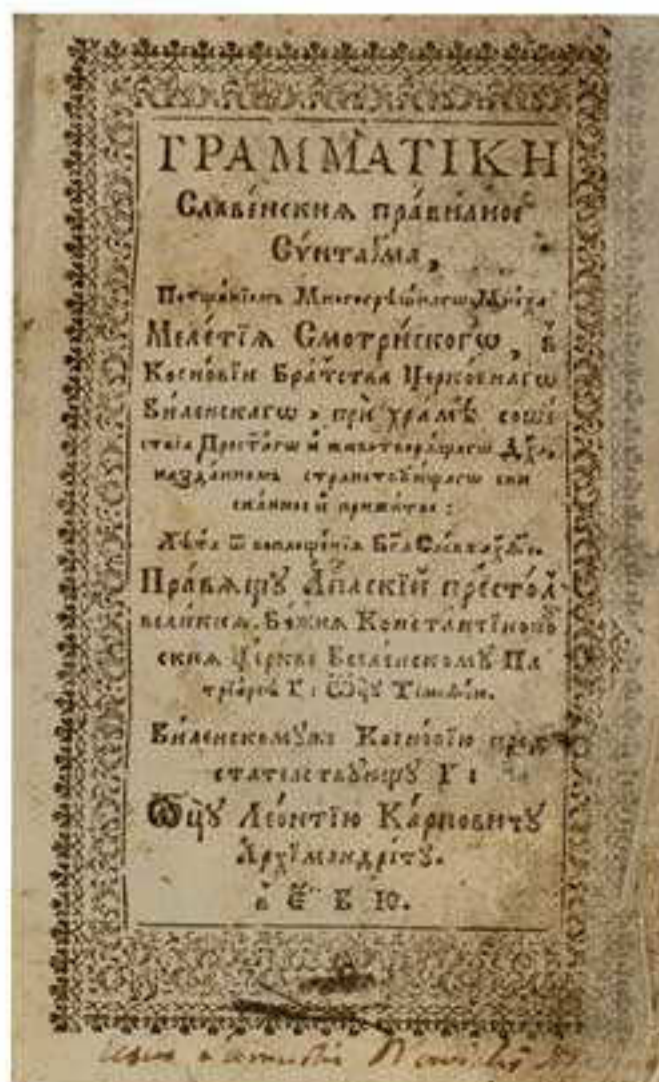 ГРАММАТІКИ
Славе́нскиѧ пра́вилное
Сѵ́нтаґма,
Потща́нїемъ Многогрѣ́шнагѡ Мни́ха
Меле́тїѧ Смотри́скогѡ, в̾
Коено́вїи Бра́тства Церко́внагѡ
Ви́ленскагѡ, прѝ хра́мѣ соше́
ствїѧ Прест҃а́гѡ и҆ животворѧ́щагѡ Дх҃а,
назда́нномъ стра́нствꙋющагѡ
сни
ска́нное и҆ прижи́тое:
Лѣ́та ѿ воплоще́нїѧ Бг҃а Сло́ва
Пра́вѧщꙋ Ап҃лскїй пре́стол
вели́киѧ Бо́жиѧ Константїнопо
скиѧ Це́ркве Вселе́нскомꙋ Па
трїа́рсѣ Г: Ѿц҃ꙋ Тїмоѳе́ю.
Ви́ленскомꙋж Коено́вїю пред
ста́телствꙋющꙋ Г:
Ѿц҃ꙋ Лео́нтїю Ка́рповичꙋ
Архїмандрі́тꙋ.
в̾ Є҆ В Ю.